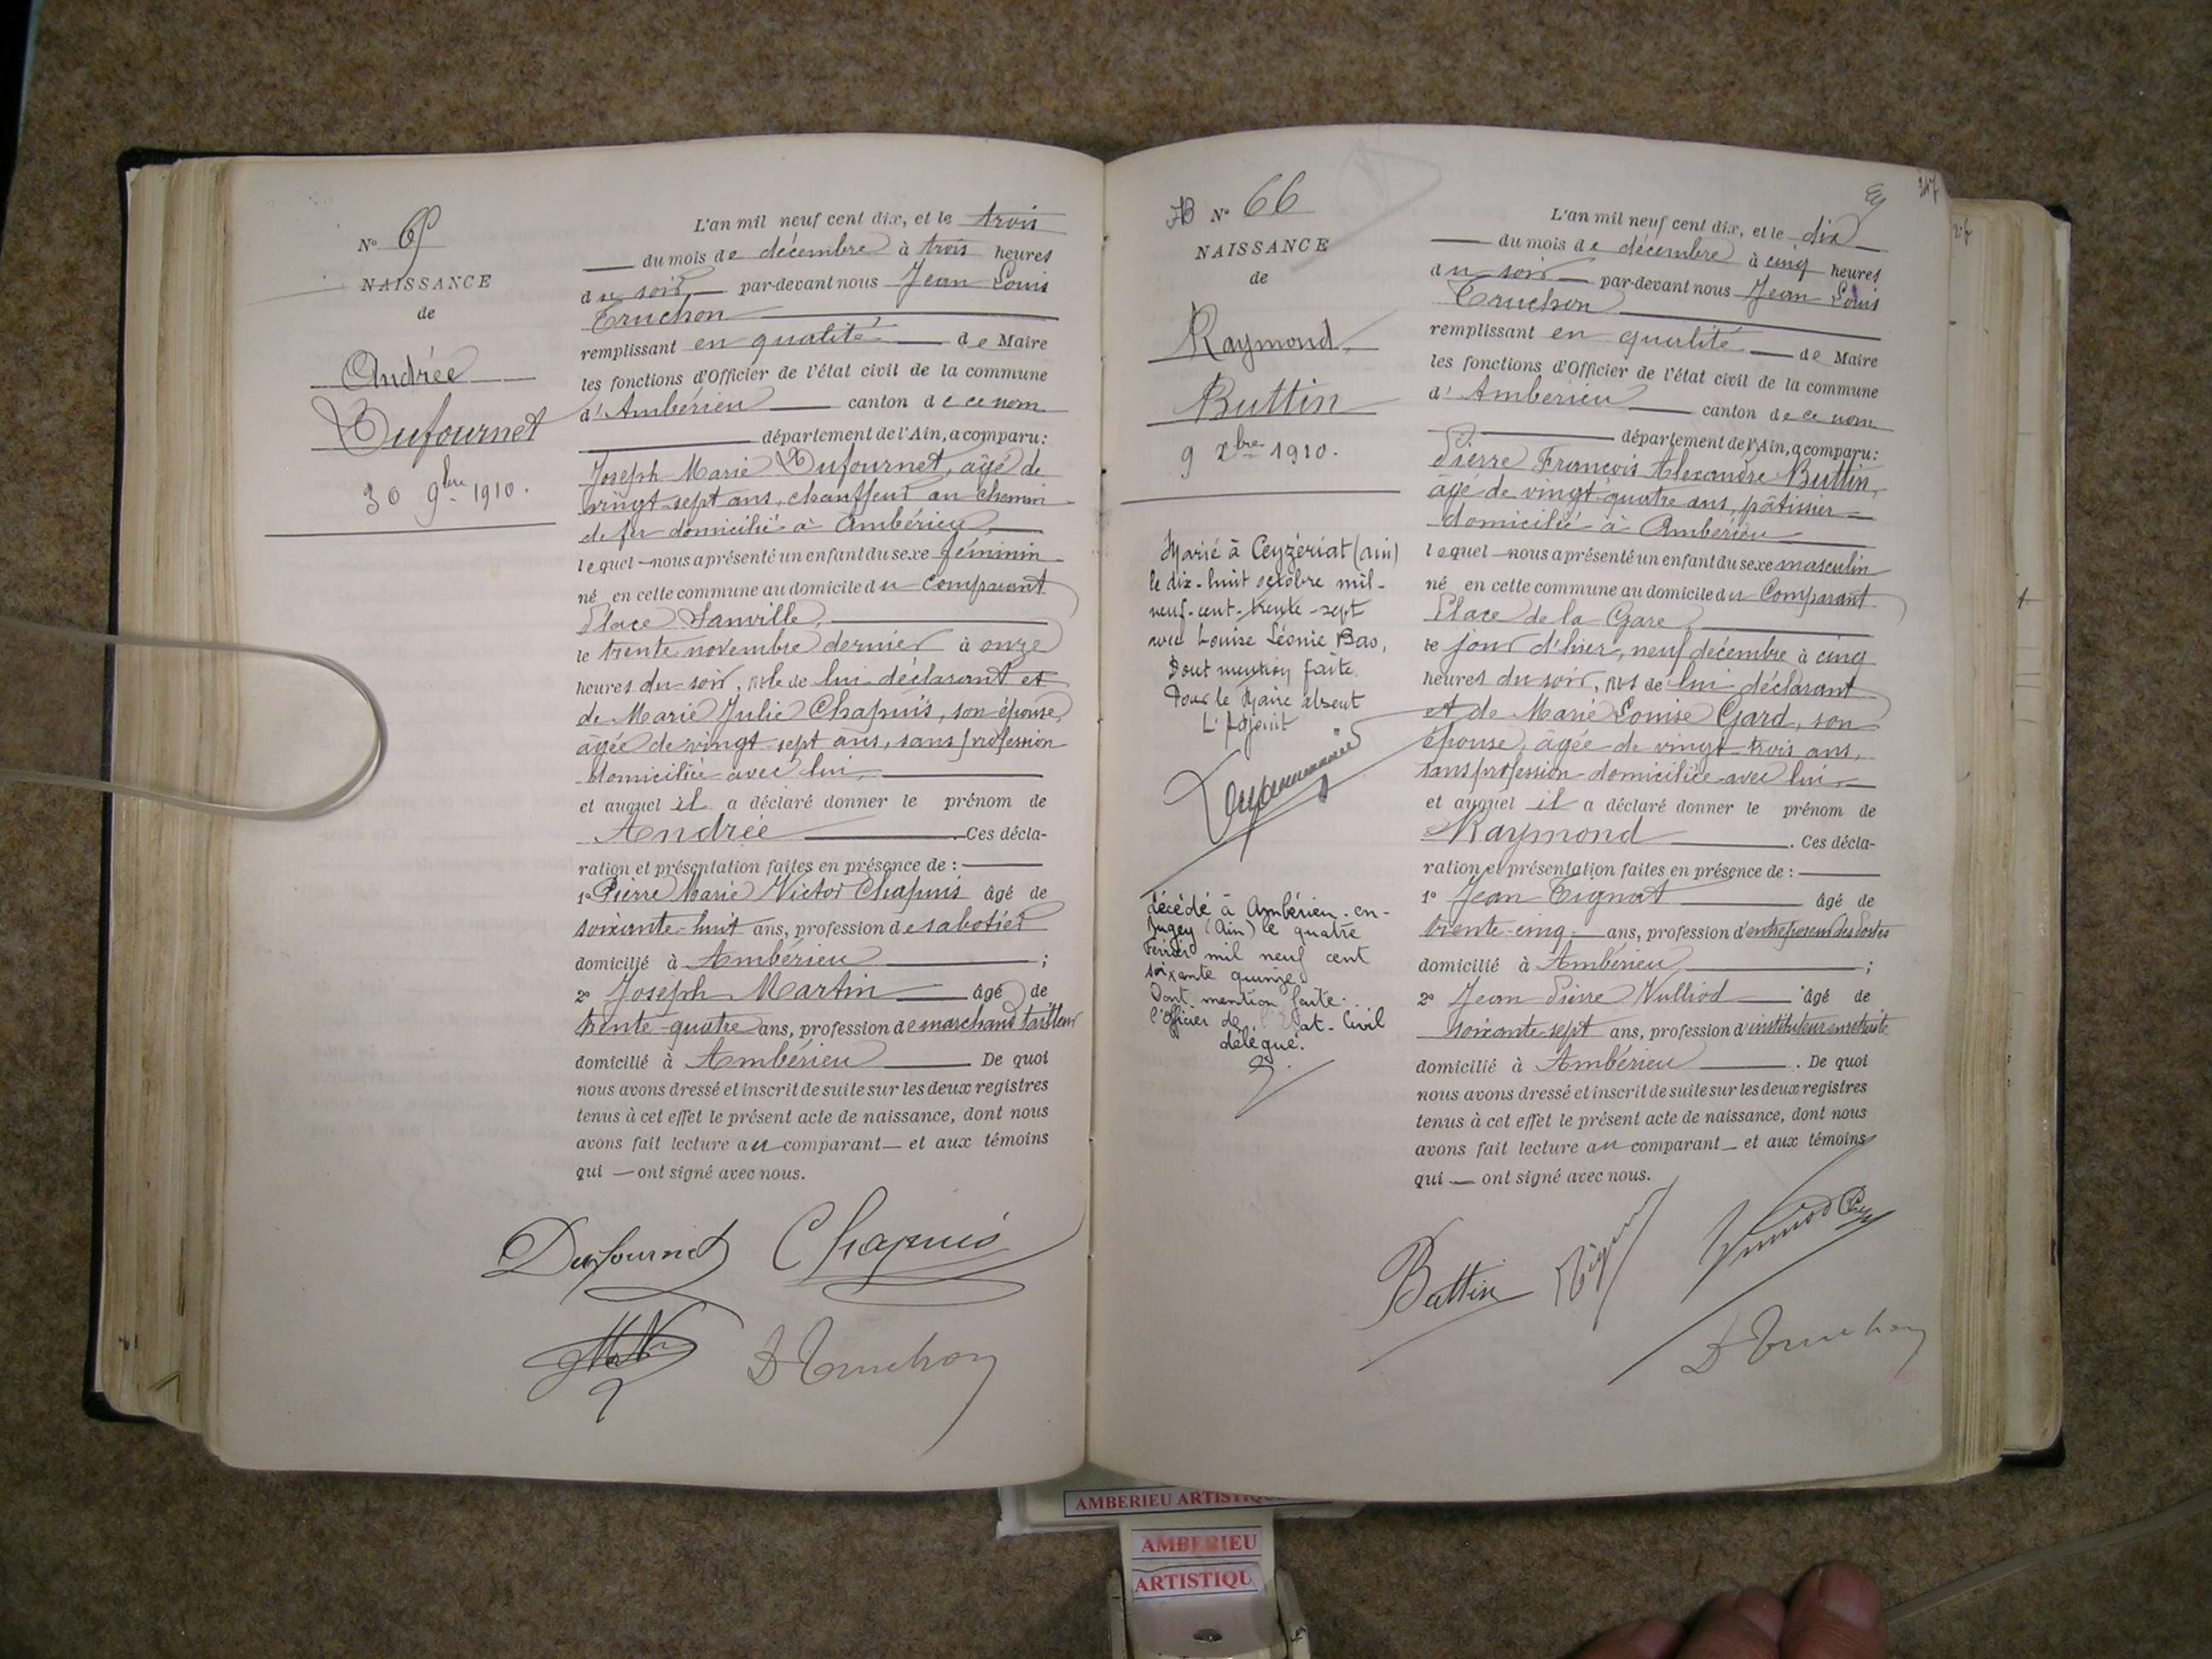 N°
NAISSANCE
de
Andrée
Dufournet
30 9bre 1910.
L'an mil neuf cent dix, et le trois
du mois de décembre à trois heures
du soir par-devant nous Jean Louis
Truchon
remplissant en qualité de Maire
les fonctions d'Officier de l'état civil de la commune
d'Ambérieu canton de ce nom
département de l'Ain, a comparu:
Joseph Marie Dufournet, âgé de
vingt-sept ans, chauffeur au chemin
de fer domicilié à Ambérieu,
lequel nous a présenté un enfant du sexe féminin
né en cette commune au domicile du Comparant
Place Sanville,
le trente novembre dernier à onze
heures du soir, fille de lui déclarant et
de Marie Julie Chapuis, son épouse,
âgée de vingt-sept ans, sans profession
domiciliée avec lui,
et auquel il a déclaré donner le prénom de
Andrée. Ces décla-
ration et présentation faites en présence de :
1° Pierre Marie Victor Chapuis âgé de
soixante-huit ans, profession de sabotier
domicilié à Ambérieu ;
2° Joseph Martin âgé de
trente-quatre ans, profession de marchand tailleur
domicilié à Ambérieu De quoi
nous avons dressé et inscrit de suite sur les deux registres
tenus à cet effet le présent acte de naissance, dont nous
avons fait lecture au comparant et aux témoins
qui ont signé avec nous.
Dufournet Chapuis
Truchon
N° 66
NAISSANCE
de
Raymond
Buttin
9 Xbre 1910.
Marié à Ceyzériat (Ain)
le dix-huit octobre mil-
neuf-cent-trente-sept
avec Louise Léonie Bas,
Dont mention faite
Pour le Maire absent
L'Adjoint
décédé à Ambérieu-en-
Bugey (Ain) le quatre
Février mil neuf cent
soixante quinze
Dont mention faite.
l'Officier de l'Etat-Civil
délégué.
347
L'an mil neuf cent dix, et le dix
du mois de décembre à cinq heures
du soir par-devant nous Jean Louis
Truchon
remplissant en qualité de Maire
les fonctions d'Officier de l'état civil de la commune
d'Ambérieu canton de ce nom
département de l'Ain, a comparu:
Pierre François Alexandre Buttin,
âgé de vingt-quatre ans, pâtissier
domicilié à Ambérieu
lequel nous a présenté un enfant du sexe masculin
né en cette commune au domicile du Comparant
Place de la Gare,
le jour d'hier, neuf décembre à cinq
heures du soir, fils de lui déclarant
et de Marie Louise Gard, son
épouse, âgée de vingt-trois ans,
sans profession domiciliée avec lui,
et auquel il a déclaré donner le prénom de
Raymond. Ces décla-
ration et présentation faites en présence de :
1° Jean Tignat âgé de
trente-cinq ans, profession d'entreposeur des Postes
domicilié à Ambérieu ;
2° Jean Pierre Vulliod âgé de
soixante-sept ans, profession d'instituteur en retraite
domicilié à Ambérieu. De quoi
nous avons dressé et inscrit de suite sur les deux registres
tenus à cet effet le présent acte de naissance, dont nous
avons fait lecture au comparant et aux témoins
qui ont signé avec nous.
Buttin
Truchon
AMBERIEU ARTISTIQUE
AMBERIEU
ARTISTIQU